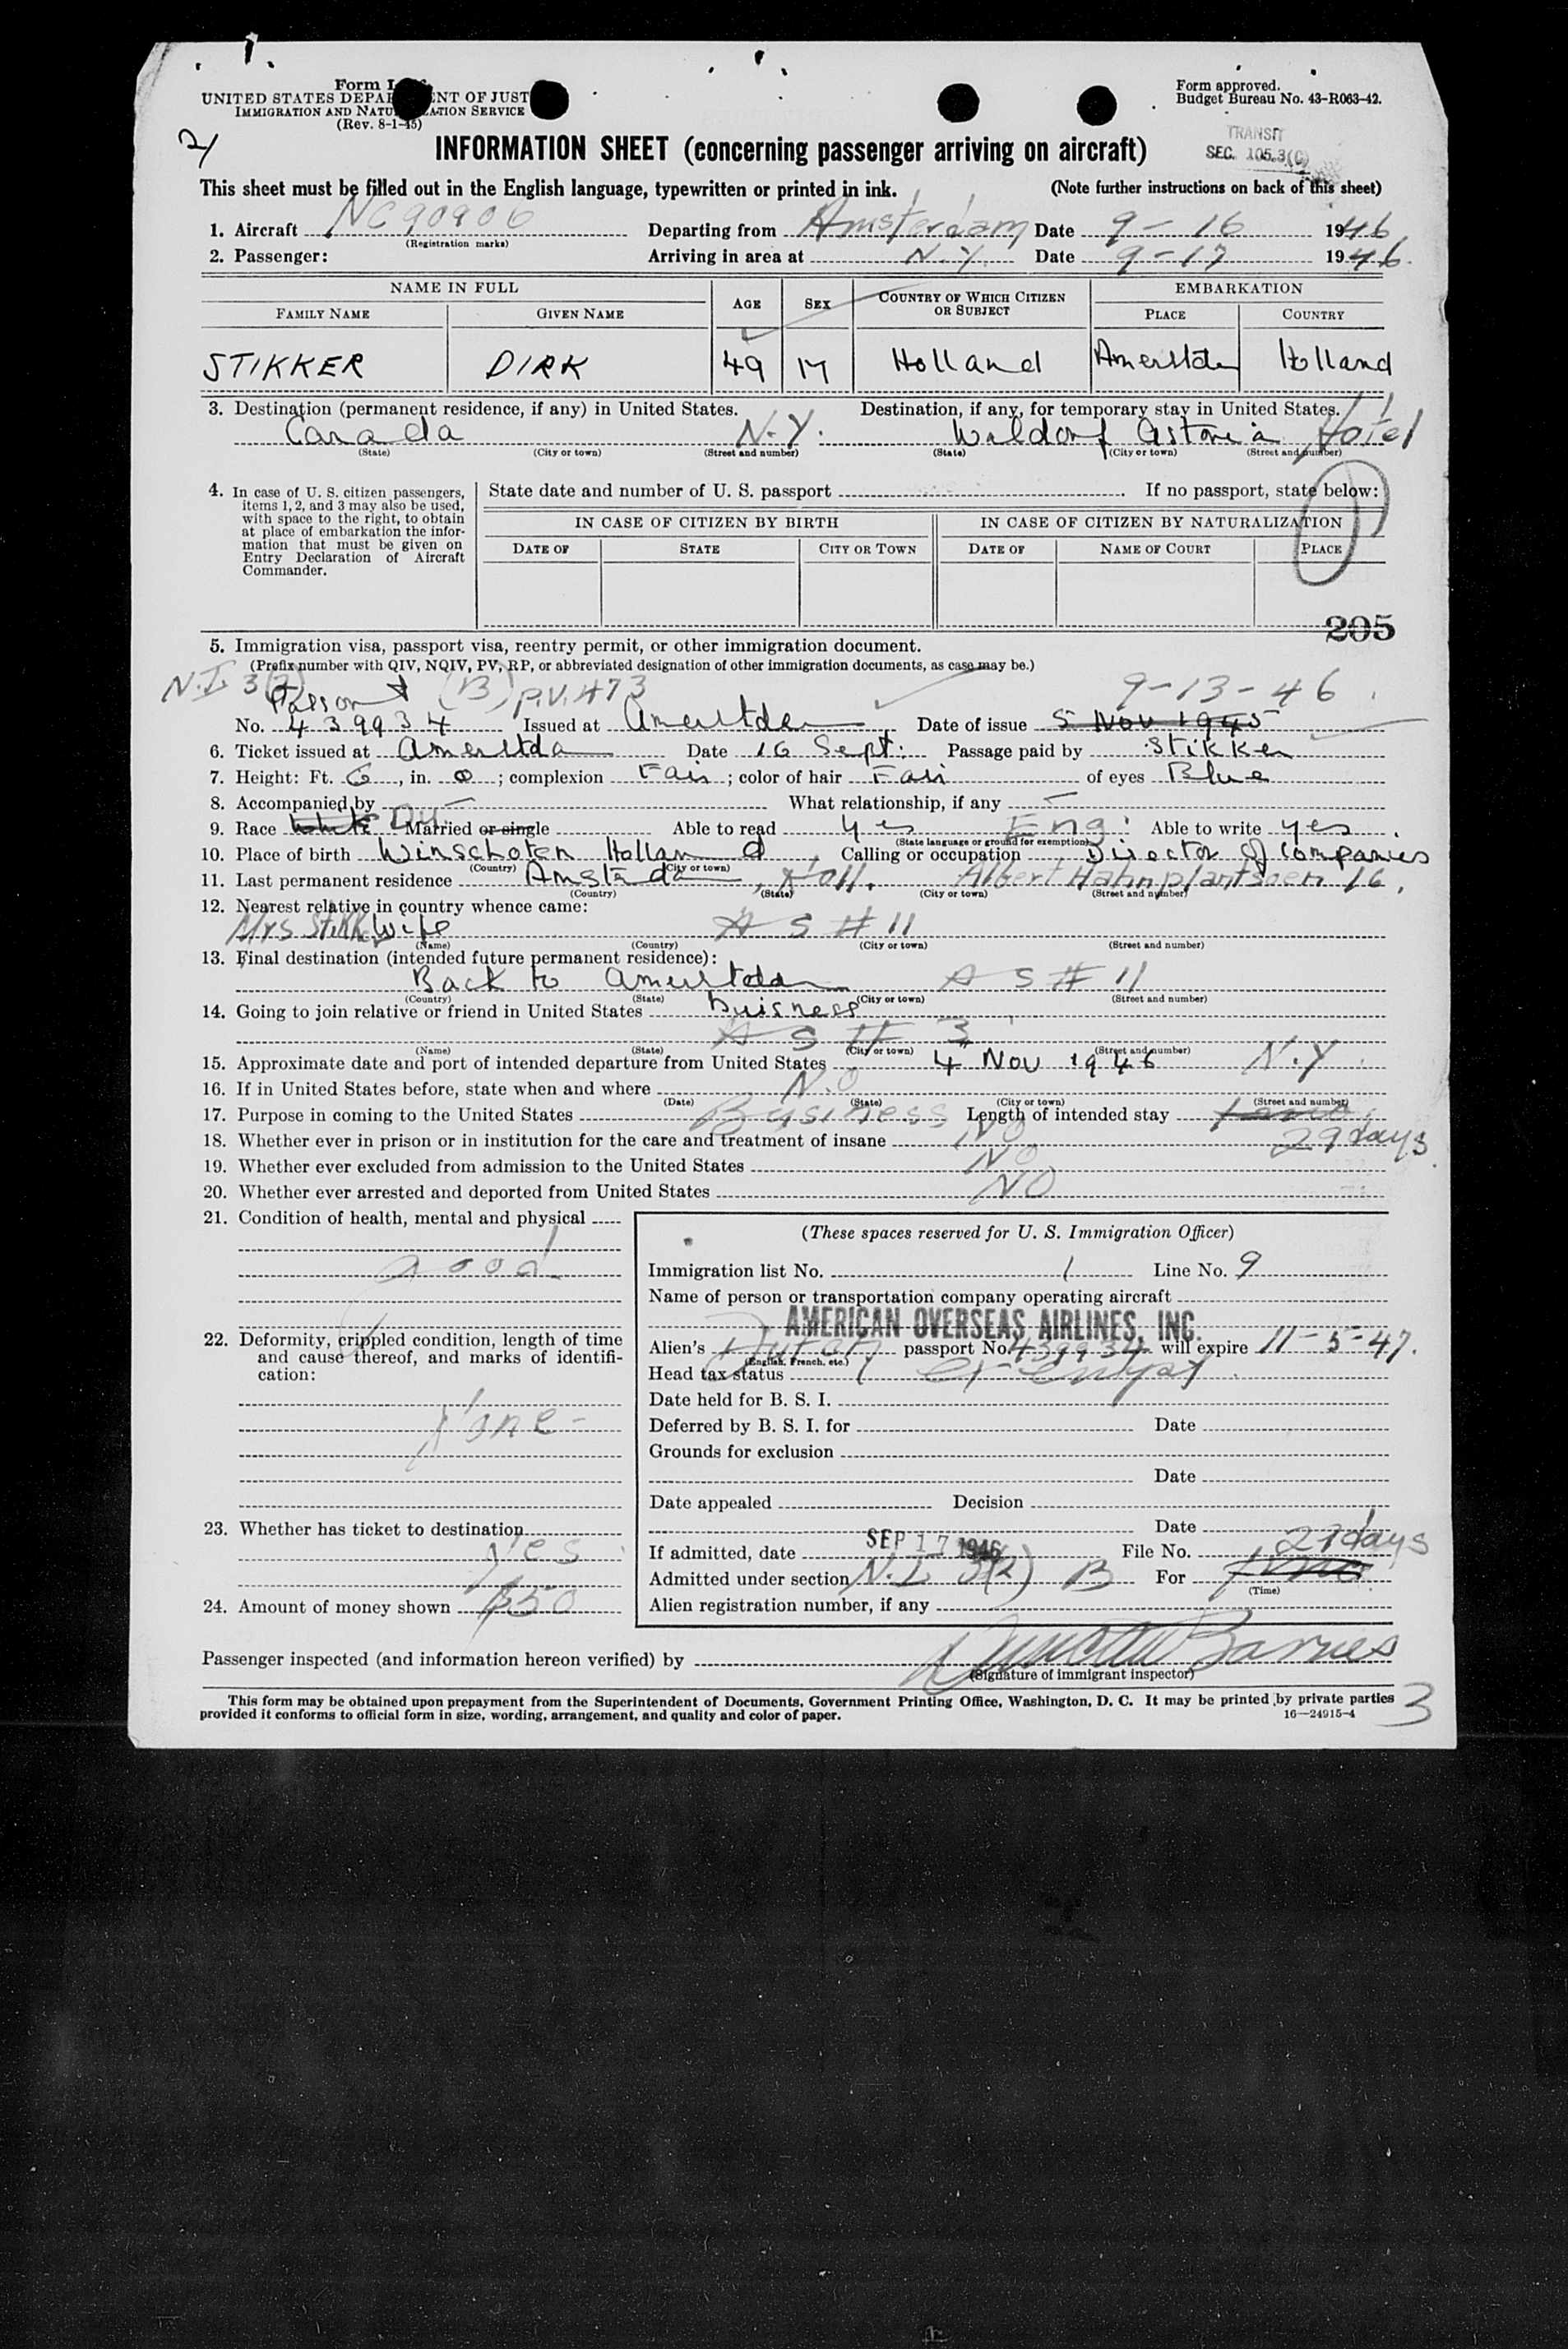 Form I-
UNITED STATES DEPARTMENT OF JUSTICE
IMMIGRATION AND NATURALIZATION SERVICE
(Rev. 8-1-45)
Form approved.
Budget Bureau No. 43-R063-42.
TRANSIT
SEC. 105.3(C)
2/
INFORMATION SHEET (concerning passenger arriving on aircraft)
This sheet must be filled out in the English language, typewritten or printed in ink. (Note further instructions on back of this sheet)
1. Aircraft NC90906 Departing from Amsterdam Date 9-16 1946
(Registration marks)
2. Passenger: Arriving in area at N.Y. Date 9-17 1946.
NAME IN FULL AGE SEX COUNTRY OF WHICH CITIZEN OR SUBJECT EMBARKATION
FAMILY NAME GIVEN NAME PLACE COUNTRY
STIKKER DIRK 49 M Holland Amerstda Holland
3. Destination (permanent residence, if any) in United States. Destination, if any, for temporary stay in United States.
Canada N.Y. Waldorf Astoria Hotel
(State) (City or town) (Street and number) (State) (City or town) (Street and number)
4. In case of U. S. citizen passengers, items 1, 2, and 3 may also be used, with space to the right, to obtain at place of embarkation the information that must be given on Entry Declaration of Aircraft Commander.
State date and number of U. S. passport If no passport, state below:
IN CASE OF CITIZEN BY BIRTH IN CASE OF CITIZEN BY NATURALIZATION
DATE OF STATE CITY OR TOWN DATE OF NAME OF COURT PLACE
205
5. Immigration visa, passport visa, reentry permit, or other immigration document.
(Prefix number with QIV, NQIV, PV, RP, or abbreviated designation of other immigration documents, as case may be.)
N.I. 3(2) (B) P.V. 473 9-13-46
No. 439934 Issued at Amerstda Date of issue 5 Nov 1945
6. Ticket issued at Amerstda Date 16 Sept. Passage paid by Stikker
7. Height: Ft. 6, in. 0; complexion Fair; color of hair Fair of eyes Blue
8. Accompanied by — What relationship, if any —
9. Race White Du Married or single Able to read Yes Eng. Able to write yes
(State language or ground for exemption)
10. Place of birth Winschoten Holland Calling or occupation Director of Companies
(Country) (City or town)
11. Last permanent residence Amstada, Holl. Albert Hahnplantsoen 16.
(Country) (State) (City or town) (Street and number)
12. Nearest relative in country whence came:
Mrs Stikker Wife A S # 11
(Name) (Country) (City or town) (Street and number)
13. Final destination (intended future permanent residence):
Back to Amerstda A S # 11
(Country) (State) (City or town) (Street and number)
14. Going to join relative or friend in United States Buisness
A S # 3
(Name) (State) (City or town) (Street and number)
15. Approximate date and port of intended departure from United States 4 Nov 1946 N.Y.
16. If in United States before, state when and where No
(Date) (State) (City or town) (Street and number)
17. Purpose in coming to the United States Business Length of intended stay
29 days
18. Whether ever in prison or in institution for the care and treatment of insane No
19. Whether ever excluded from admission to the United States No
20. Whether ever arrested and deported from United States NO
21. Condition of health, mental and physical
good
22. Deformity, crippled condition, length of time and cause thereof, and marks of identification:
None-
23. Whether has ticket to destination
Yes
24. Amount of money shown $50
(These spaces reserved for U. S. Immigration Officer)
Immigration list No. 1 Line No. 9
Name of person or transportation company operating aircraft
AMERICAN OVERSEAS AIRLINES, INC.
Alien's Dutch passport No. 439934 will expire 11-5-47.
(English, French, etc.)
Head tax status exempt
Date held for B. S. I.
Deferred by B. S. I. for Date
Grounds for exclusion
Date
Date appealed Decision
Date
If admitted, date SEP 17 1946 File No. 29 days
Admitted under section N.I. 3(2) B For
(Time)
Alien registration number, if any
Passenger inspected (and information hereon verified) by Barnes
(Signature of immigrant inspector)
This form may be obtained upon prepayment from the Superintendent of Documents, Government Printing Office, Washington, D. C. It may be printed by private parties
provided it conforms to official form in size, wording, arrangement, and quality and color of paper. 16—24915-4
3